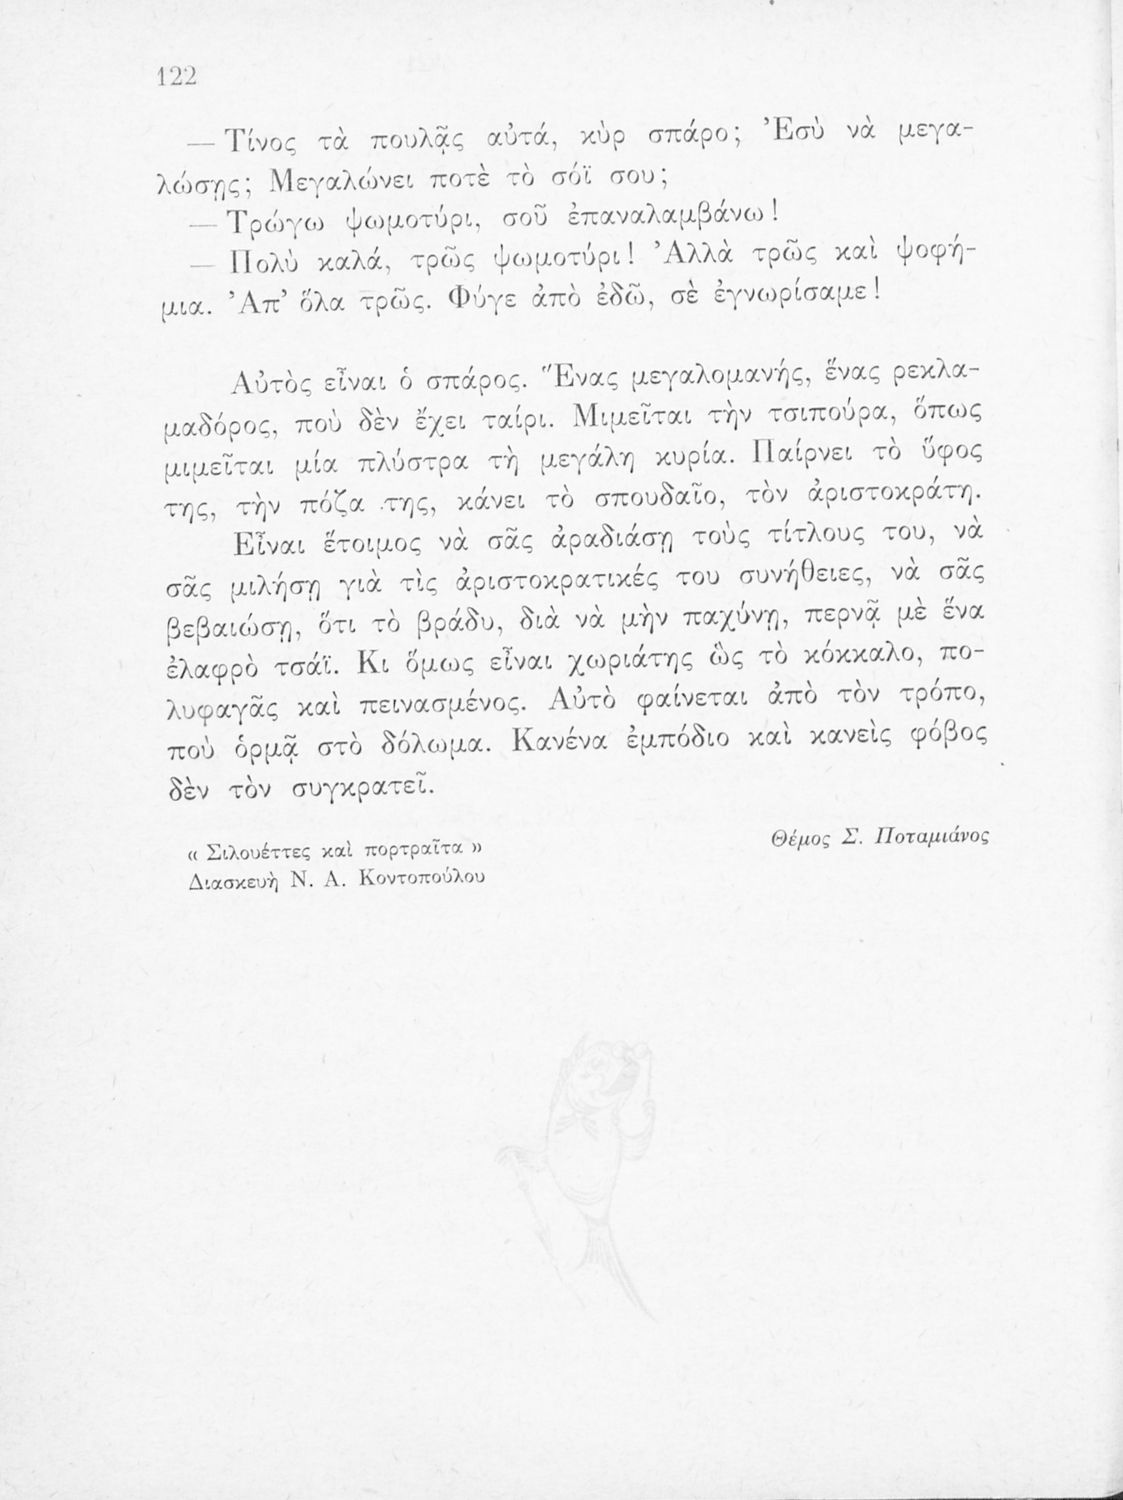 122
— Τίνος τὰ πουλᾷς αὐτά, κὺρ σπάρο; Ἐσὺ νὰ μεγα-
λώσῃς; Μεγαλώνει ποτὲ τὸ σόϊ σου;
— Τρώγω ψωμοτύρι, σοῦ ἐπαναλαμβάνω!
— Πολὺ καλά, τρῶς ψωμοτύρι! Ἀλλὰ τρῶς καὶ ψοφή-
μια. Ἀπ’ ὅλα τρῶς. Φύγε ἀπὸ ἐδῶ, σὲ ἐγνωρίσαμε!
Αὐτὸς εἶναι ὁ σπάρος. Ἕνας μεγαλομανής, ἕνας ρεκλα-
μαδόρος, ποὺ δὲν ἔχει ταίρι. Μιμεῖται τὴν τσιπούρα, ὅπως
μιμεῖται μία πλύστρα τὴ μεγάλη κυρία. Παίρνει τὸ ὕφος
της, τὴν πόζα της, κάνει τὸ σπουδαῖο, τὸν ἀριστοκράτη.
Εἶναι ἕτοιμος νὰ σᾶς ἀραδιάσῃ τοὺς τίτλους του, νὰ
σᾶς μιλήσῃ γιὰ τὶς ἀριστοκρατικές του συνήθειες, νὰ σᾶς
βεβαιώσῃ, ὅτι τὸ βράδυ, διὰ νὰ μὴν παχύνῃ, περνᾷ μὲ ἕνα
ἐλαφρὸ τσάϊ. Κι ὅμως εἶναι χωριάτης ὣς τὸ κόκκαλο, πο-
λυφαγᾶς καὶ πεινασμένος. Αὐτὸ φαίνεται ἀπὸ τὸν τρόπο,
ποὺ ὁρμᾷ στὸ δόλωμα. Κανένα ἐμπόδιο καὶ κανεὶς φόβος
δὲν τὸν συγκρατεῖ.
« Σιλουέττες καὶ πορτραῖτα »
Διασκευὴ Ν. Α. Κοντοπούλου
Θέμος Σ. Ποταμιάνος